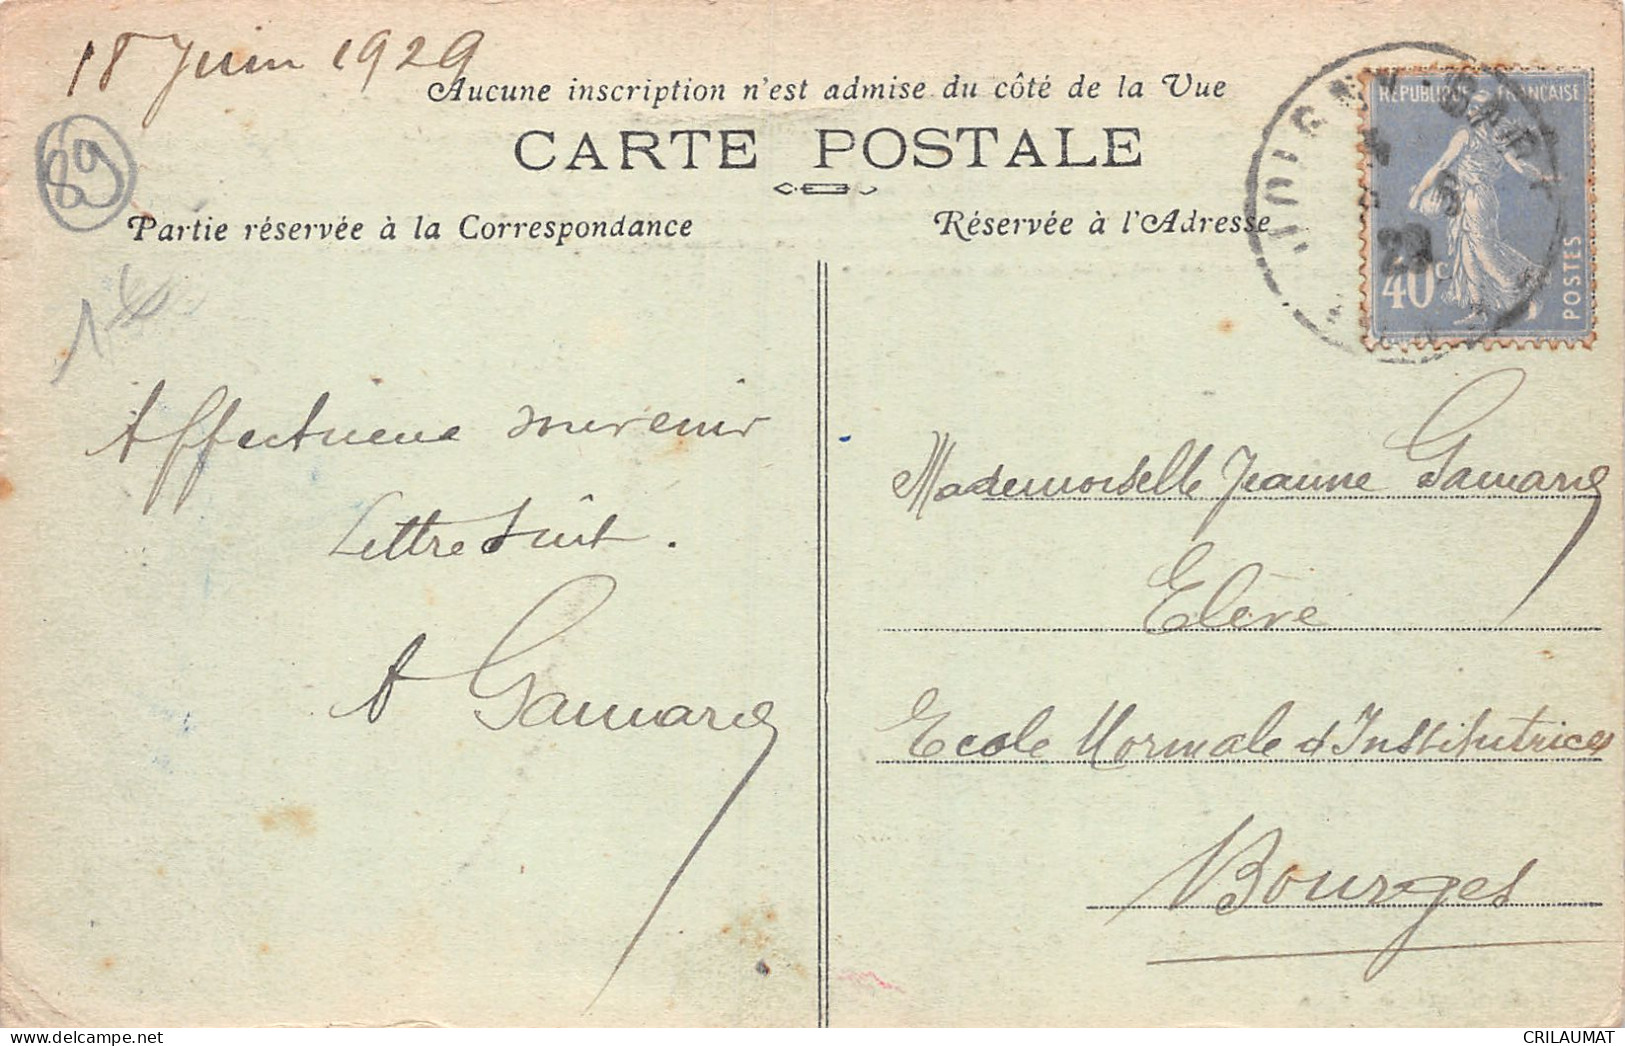 18 Juin 1929
Aucune inscription n'est admise du côté de la Vue
CARTE POSTALE
89
Partie réservée à la Correspondance
Réservée à l'Adresse
JOIGNY-GARE
29
RÉPUBLIQUE FRANÇAISE
40c
POSTES
Affectueux souvenir
Lettre suit.
A Gamard
Mademoiselle Jeanne Gamard
Elève
Ecole Normale d'Institutrices
Bourges
delcampe.net
CRILAUMAT